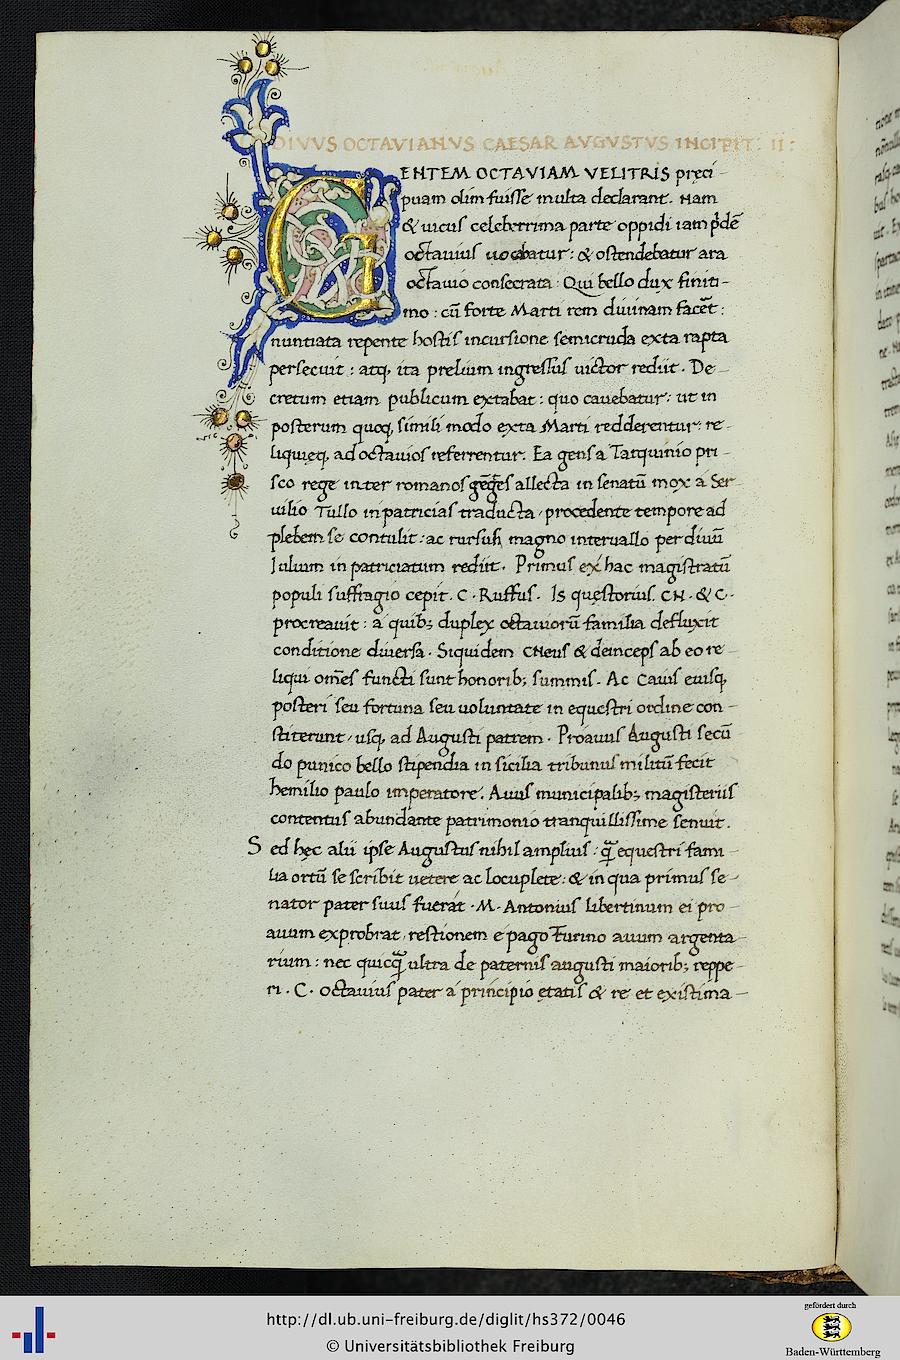 DIVVS OCTAVIANVS CAESAR AVGVSTVS INCIPIT: II:
GENTEM OCTAVIAM VELITRIS pręci
puam olim fuisse multa declarant. Nam
& uicus celeberrima parte oppidi iam pdē
octauius uocabatur: & ostendebatur ara
octauio consecrata: Qui bello dux finiti-
mo: cū forte Marti rem diuinam facēt:
nuntiata repente hostis incursione semicruda exta rapta
persecuit: atq, ita prelium ingressus uictor rediit. De-
cretum etiam publicum extabat: quo cauebatur: ut in
posterum quoq, simili modo exta Marti redderentur: re-
liquięq, ad octauios referrentur. Ea gens a Tarquinio pri-
sco rege inter romanos gētes allecta in senatū mox a Ser
uilio Tullo in patricias traducta, procedente tempore ad
plebem se contulit: ac rursus magno interuallo per diuū
Iulium in patriciatum rediit. Primus ex hac magistratū
populi suffragio cepit. C. Ruffus. Is quęstorius. CN. & C.
procreauit: a quib; duplex octauiorū familia defluxit
conditione diuersa. Siquidem CNeus & deinceps ab eo re-
liqui om̄es functi sunt honorib; summis. Ac Caius eiusq,
posteri seu fortuna seu uoluntate in equestri ordine con-
stiterunt, usq, ad Augusti patrem. Proauus Augusti secū
do punico bello stipendia in sicilia tribunus militū fecit
hemilio paulo imperatore. Auus municipalib; magisteriis
contentus abundante patrimonio tranquillissime senuit.
Sed hęc alii ipse Augustus nihil amplius: q̄ equestri fami-
lia ortū se scribit uetere ac locuplete: & in qua primus se-
nator pater suus fuerat. M. Antonius libertinum ei pro-
auum exprobrat, restionem e pago Turino auum argenta-
rium: nec quicq̄ ultra de paternis augusti maiorib; reppe-
ri. C. Octauius pater a principio ętatis & re et existima-
http://dl.ub.uni-freiburg.de/diglit/hs372/0046
© Universitätsbibliothek Freiburg
gefördert durch
Baden-Württemberg